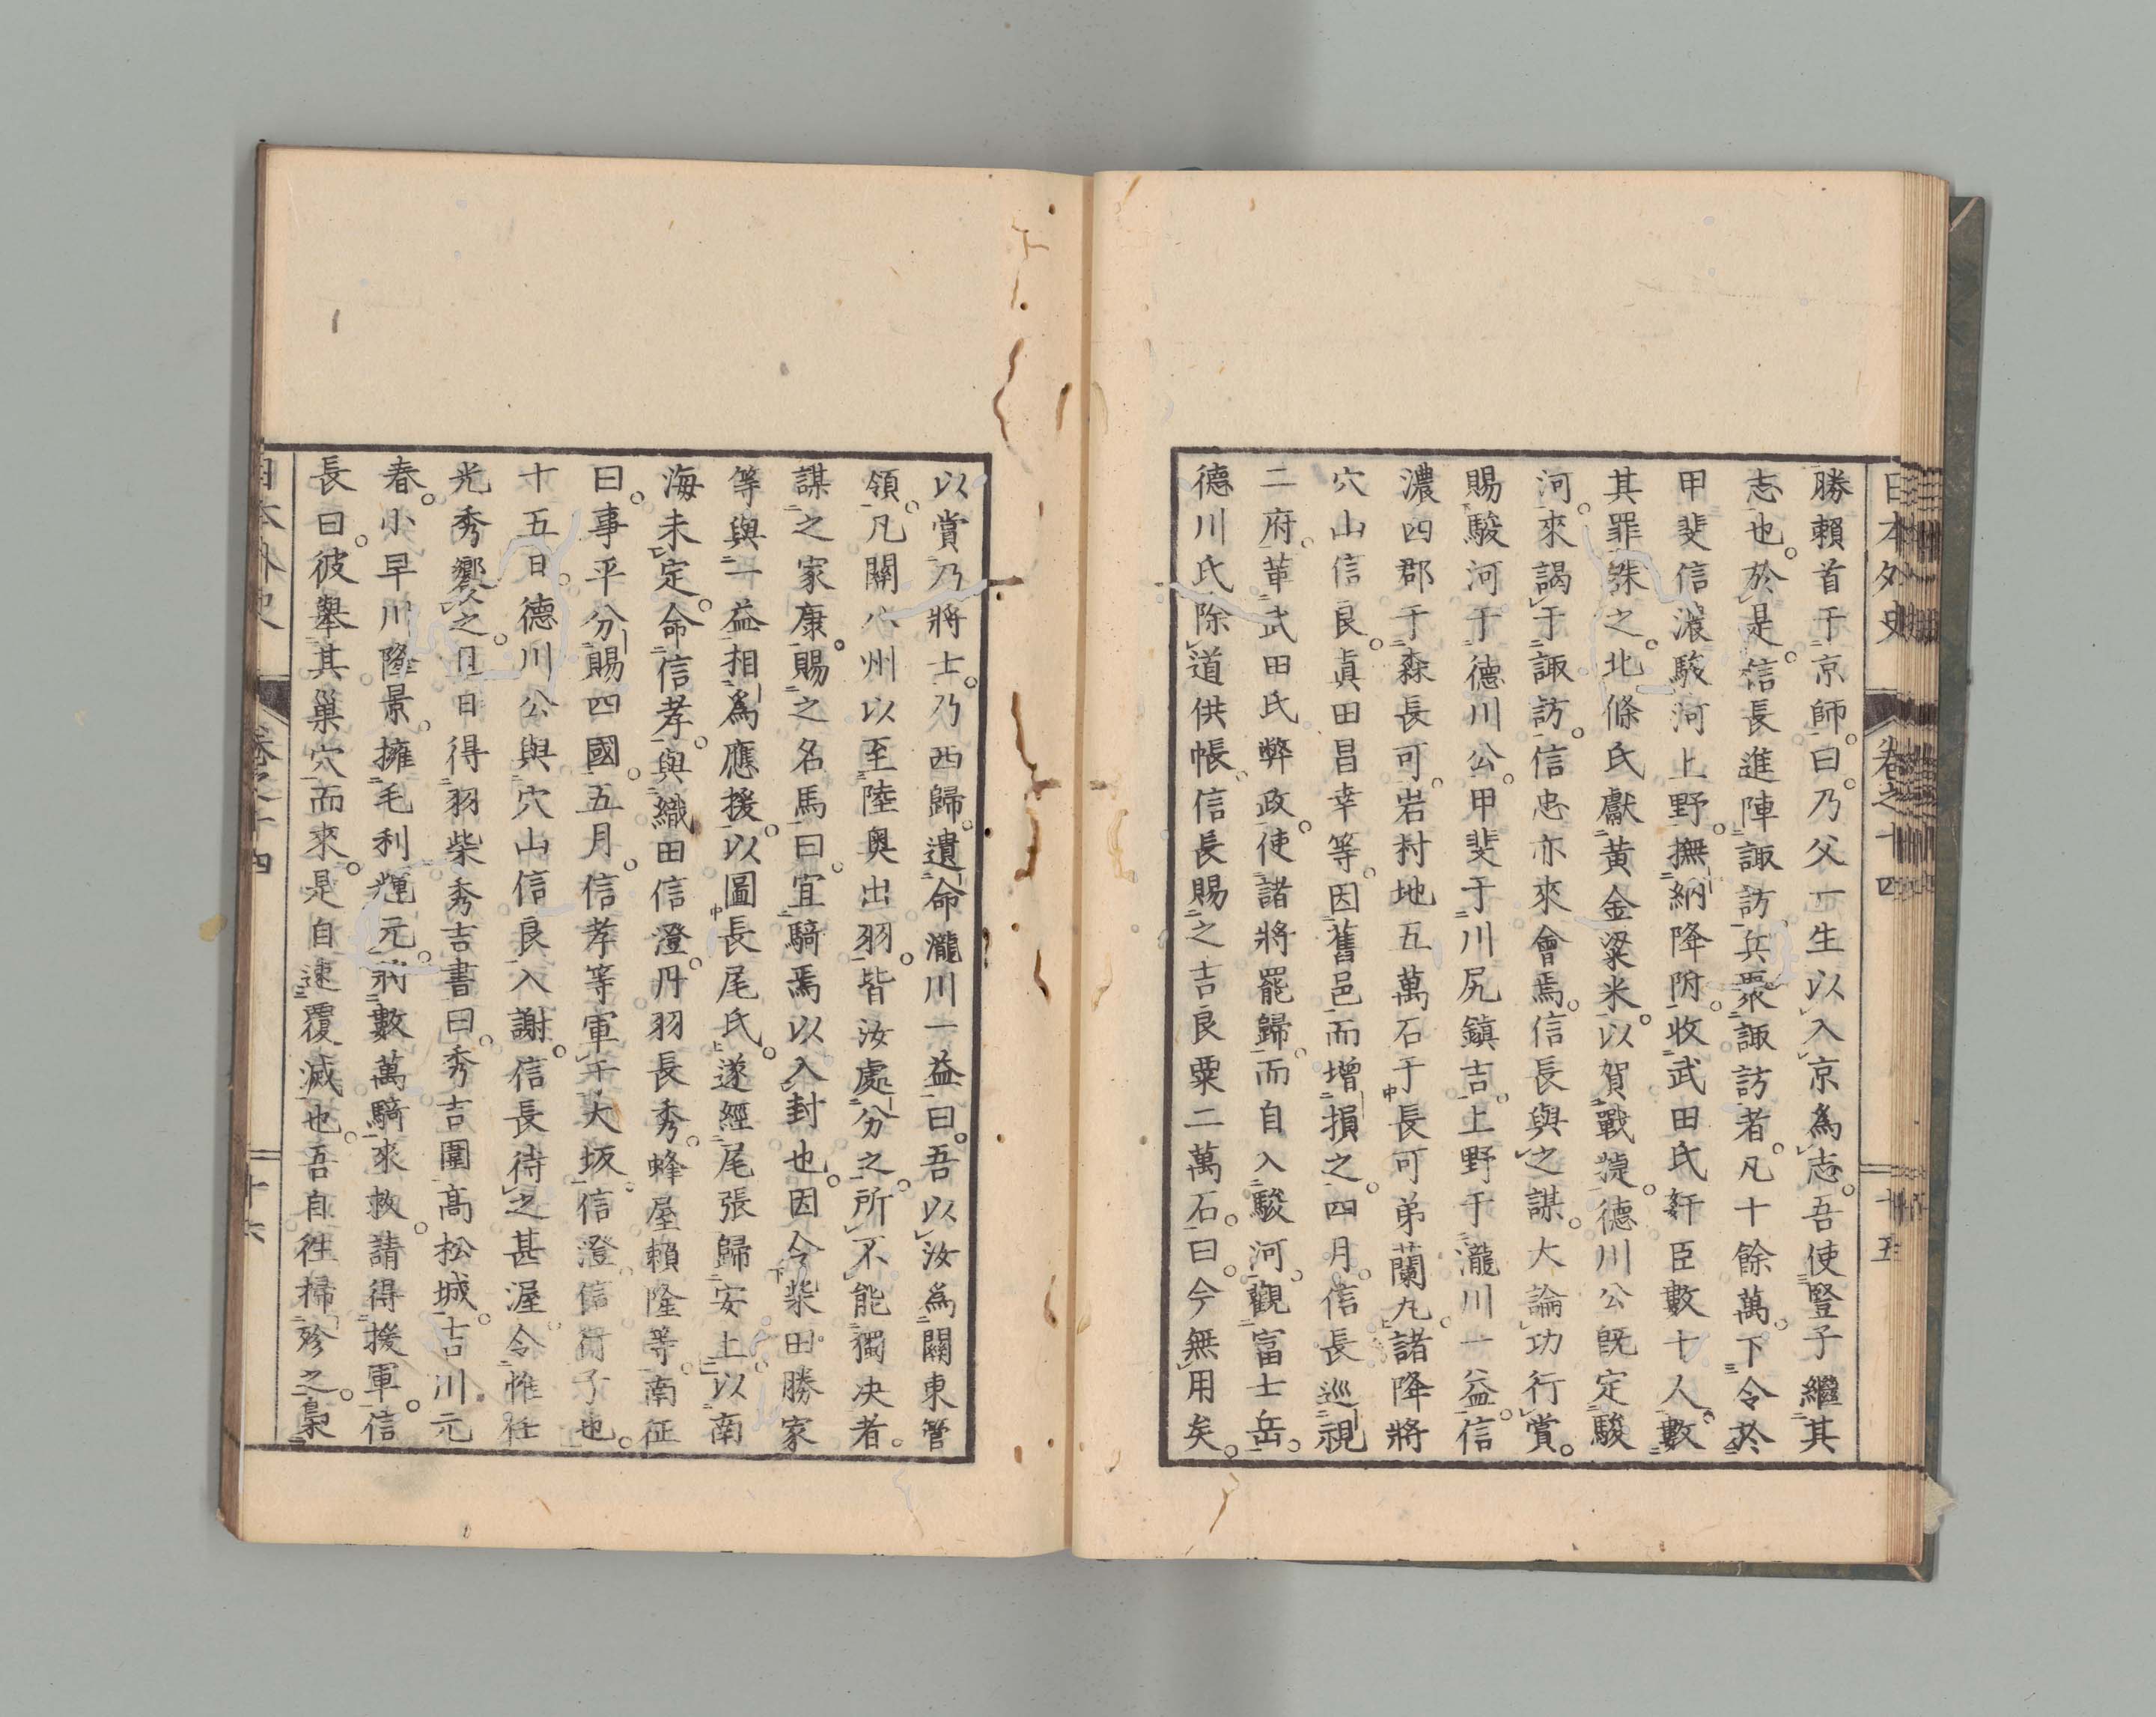 日本外史 卷之十四 十五
勝賴首于京師。曰。乃父一生以入京爲志。吾使豎子繼其
志也。於是。信長進陣諏訪。兵聚諏訪者。凡十餘萬。下令於
甲斐信濃駿河上野。撫納降附。收武田氏奸臣數十人。數
其罪誅之。北條氏獻黃金粱米。以賀戰捷。德川公既定駿
河。來謁于諏訪。信忠亦來會焉。信長與之謀。大論功行賞。
賜駿河于德川公。甲斐于川尻鎮吉。上野于瀧川一益。信
濃四郡于森長可。岩村地五萬石于長可弟蘭丸。諸降將
穴山信良。眞田昌幸等。因舊邑而增損之。四月。信長巡視
二府。革武田氏弊政。使諸將罷歸。而自入駿河。觀富士岳。
德川氏除道供帳。信長賜之吉良粟二萬石。曰。今無用矣。
以賞乃將士。乃西歸。遺命瀧川一益曰。吾以汝爲關東管
領。凡關八州以至陸奧出羽。皆汝處分之。所不能獨决者。
謀之家康。賜之名馬曰。宜騎焉以入封也。因令柴田勝家
等與一益相爲應援。以圖長尾氏。遂經尾張歸安土。以南
海未定。命信孝。與織田信澄。丹羽長秀。蜂屋賴隆等。南征
曰。事平分賜四國。五月。信孝等軍于大坂。信澄。信行子也。
十五日。德川公與穴山信良入謝。信長待之甚渥。令惟任
光秀饗之。旦日得羽柴秀吉書曰。秀吉圍高松城。吉川元
春。小早川隆景。擁毛利輝元。將數萬騎來救。請得援軍。信
長曰。彼舉其巢穴而來。是自速覆滅也。吾自往掃殄之。梟
日本外史 卷之十四 十六